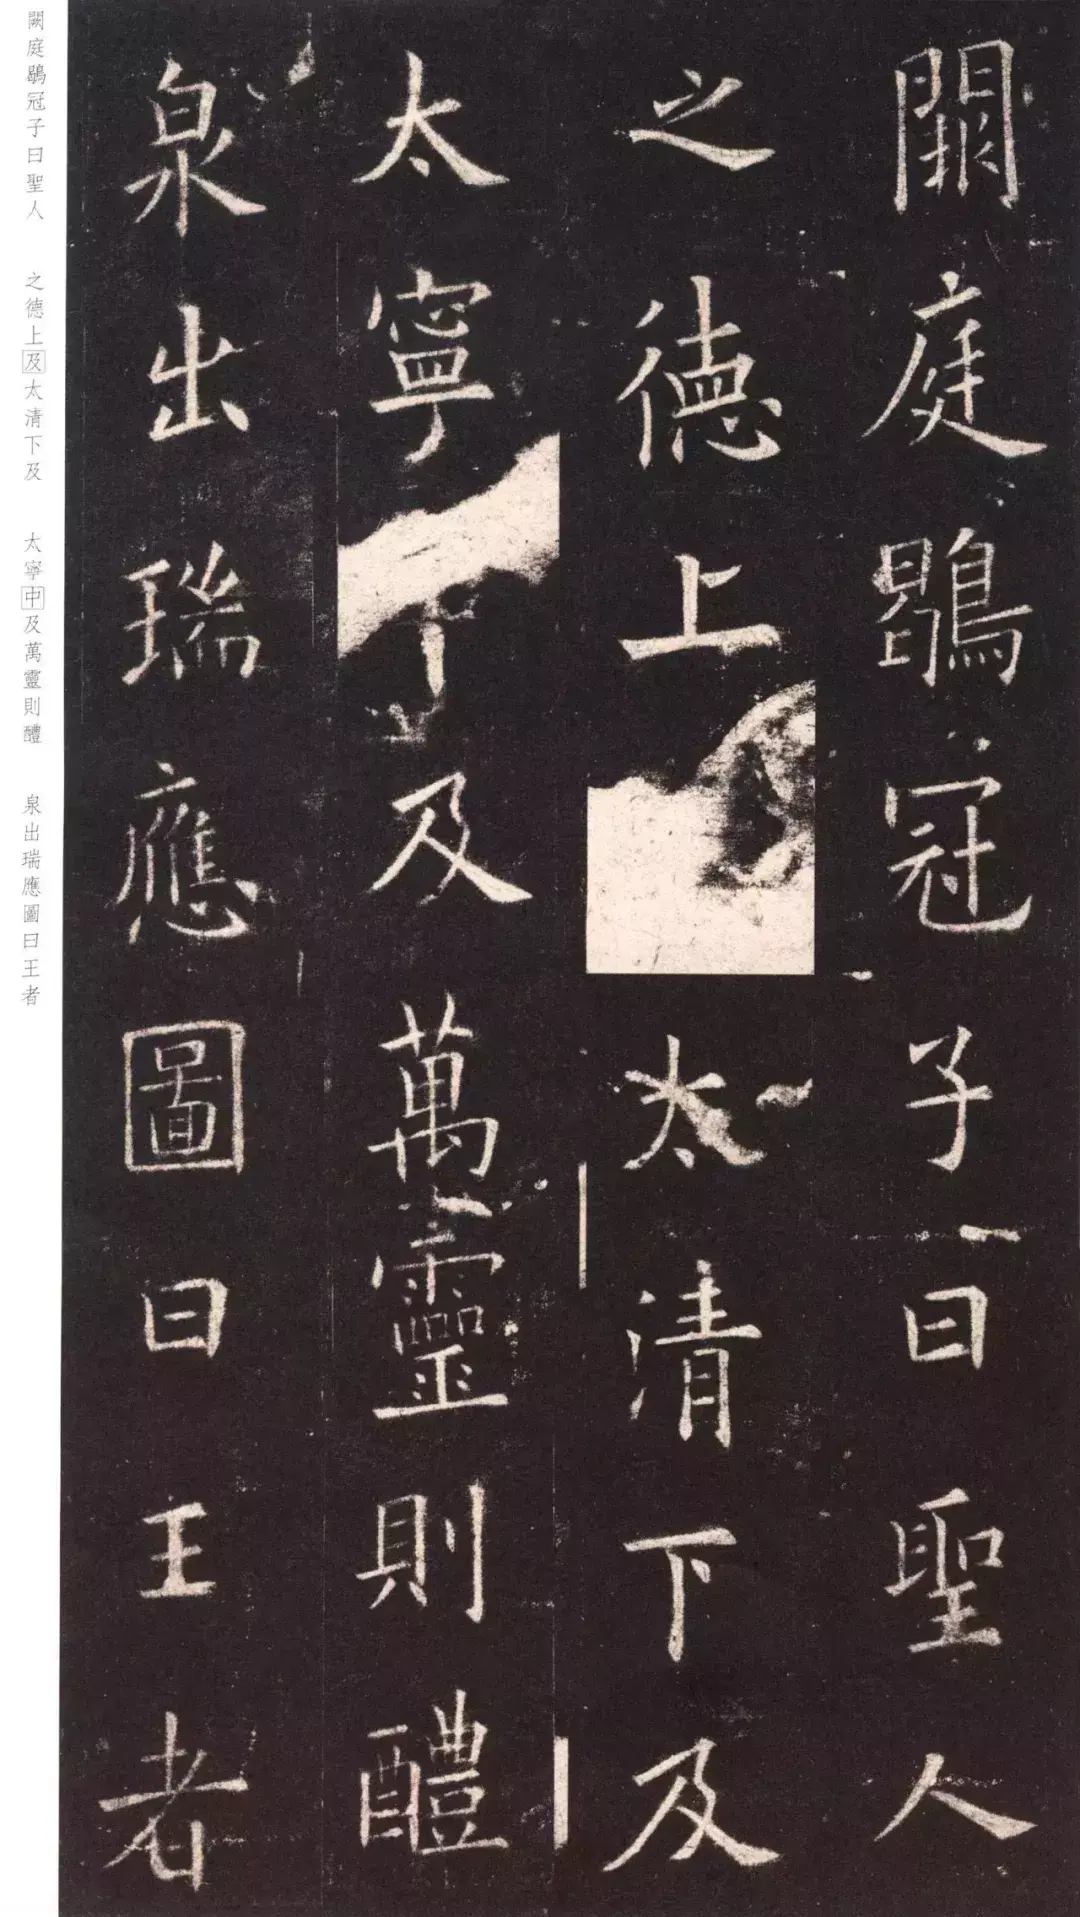 闕庭鶡冠子曰聖人
之德上太清下及
太寧及萬靈則醴
泉出瑞應圖曰王者
闕庭鶡冠子曰聖人 之德上及太清下及 太寧中及萬靈則醴 泉出瑞應圖曰王者